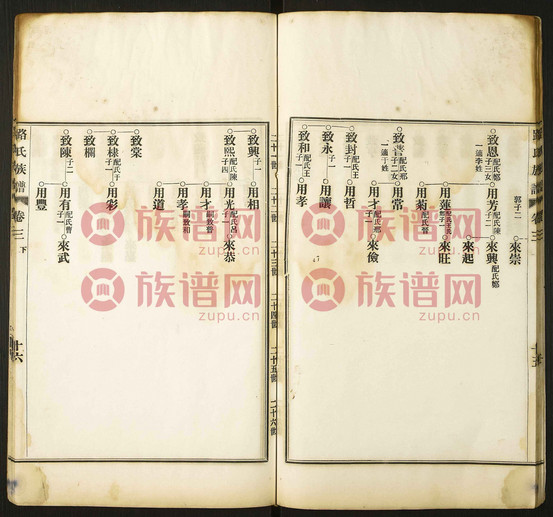 郭子二
來崇
致恩
配氏鄭
子三女
一適李姓
用芳
配氏陳
子二
來興
配氏鄭
來起
用蓮
來旺
用菊
配氏
用常
致善
配氏鄭
子二女
一適于姓
用才
子一
來儉
致封
子一
用哲
致永
子一
用讓
致和
配氏王
子一
用孝
二十一世 二十二世 二十三世 二十四世 二十五世 二十六世
致興
子一
用相
致熙
配氏陳
子四
用光
配氏呂
子一
來恭
用才
嗣致善
用孝
嗣致和
用道
致棠
致棣
配氏于
子一
用彩
致欄
致陳
子二
用有
配氏曹
子一
來武
用豐
路氏族譜 卷三 下 十六
族谱网
zupu.cn
族谱网
zupu.cn
族谱网
zupu.cn
族谱网
zupu.cn
族谱网
zupu.cn